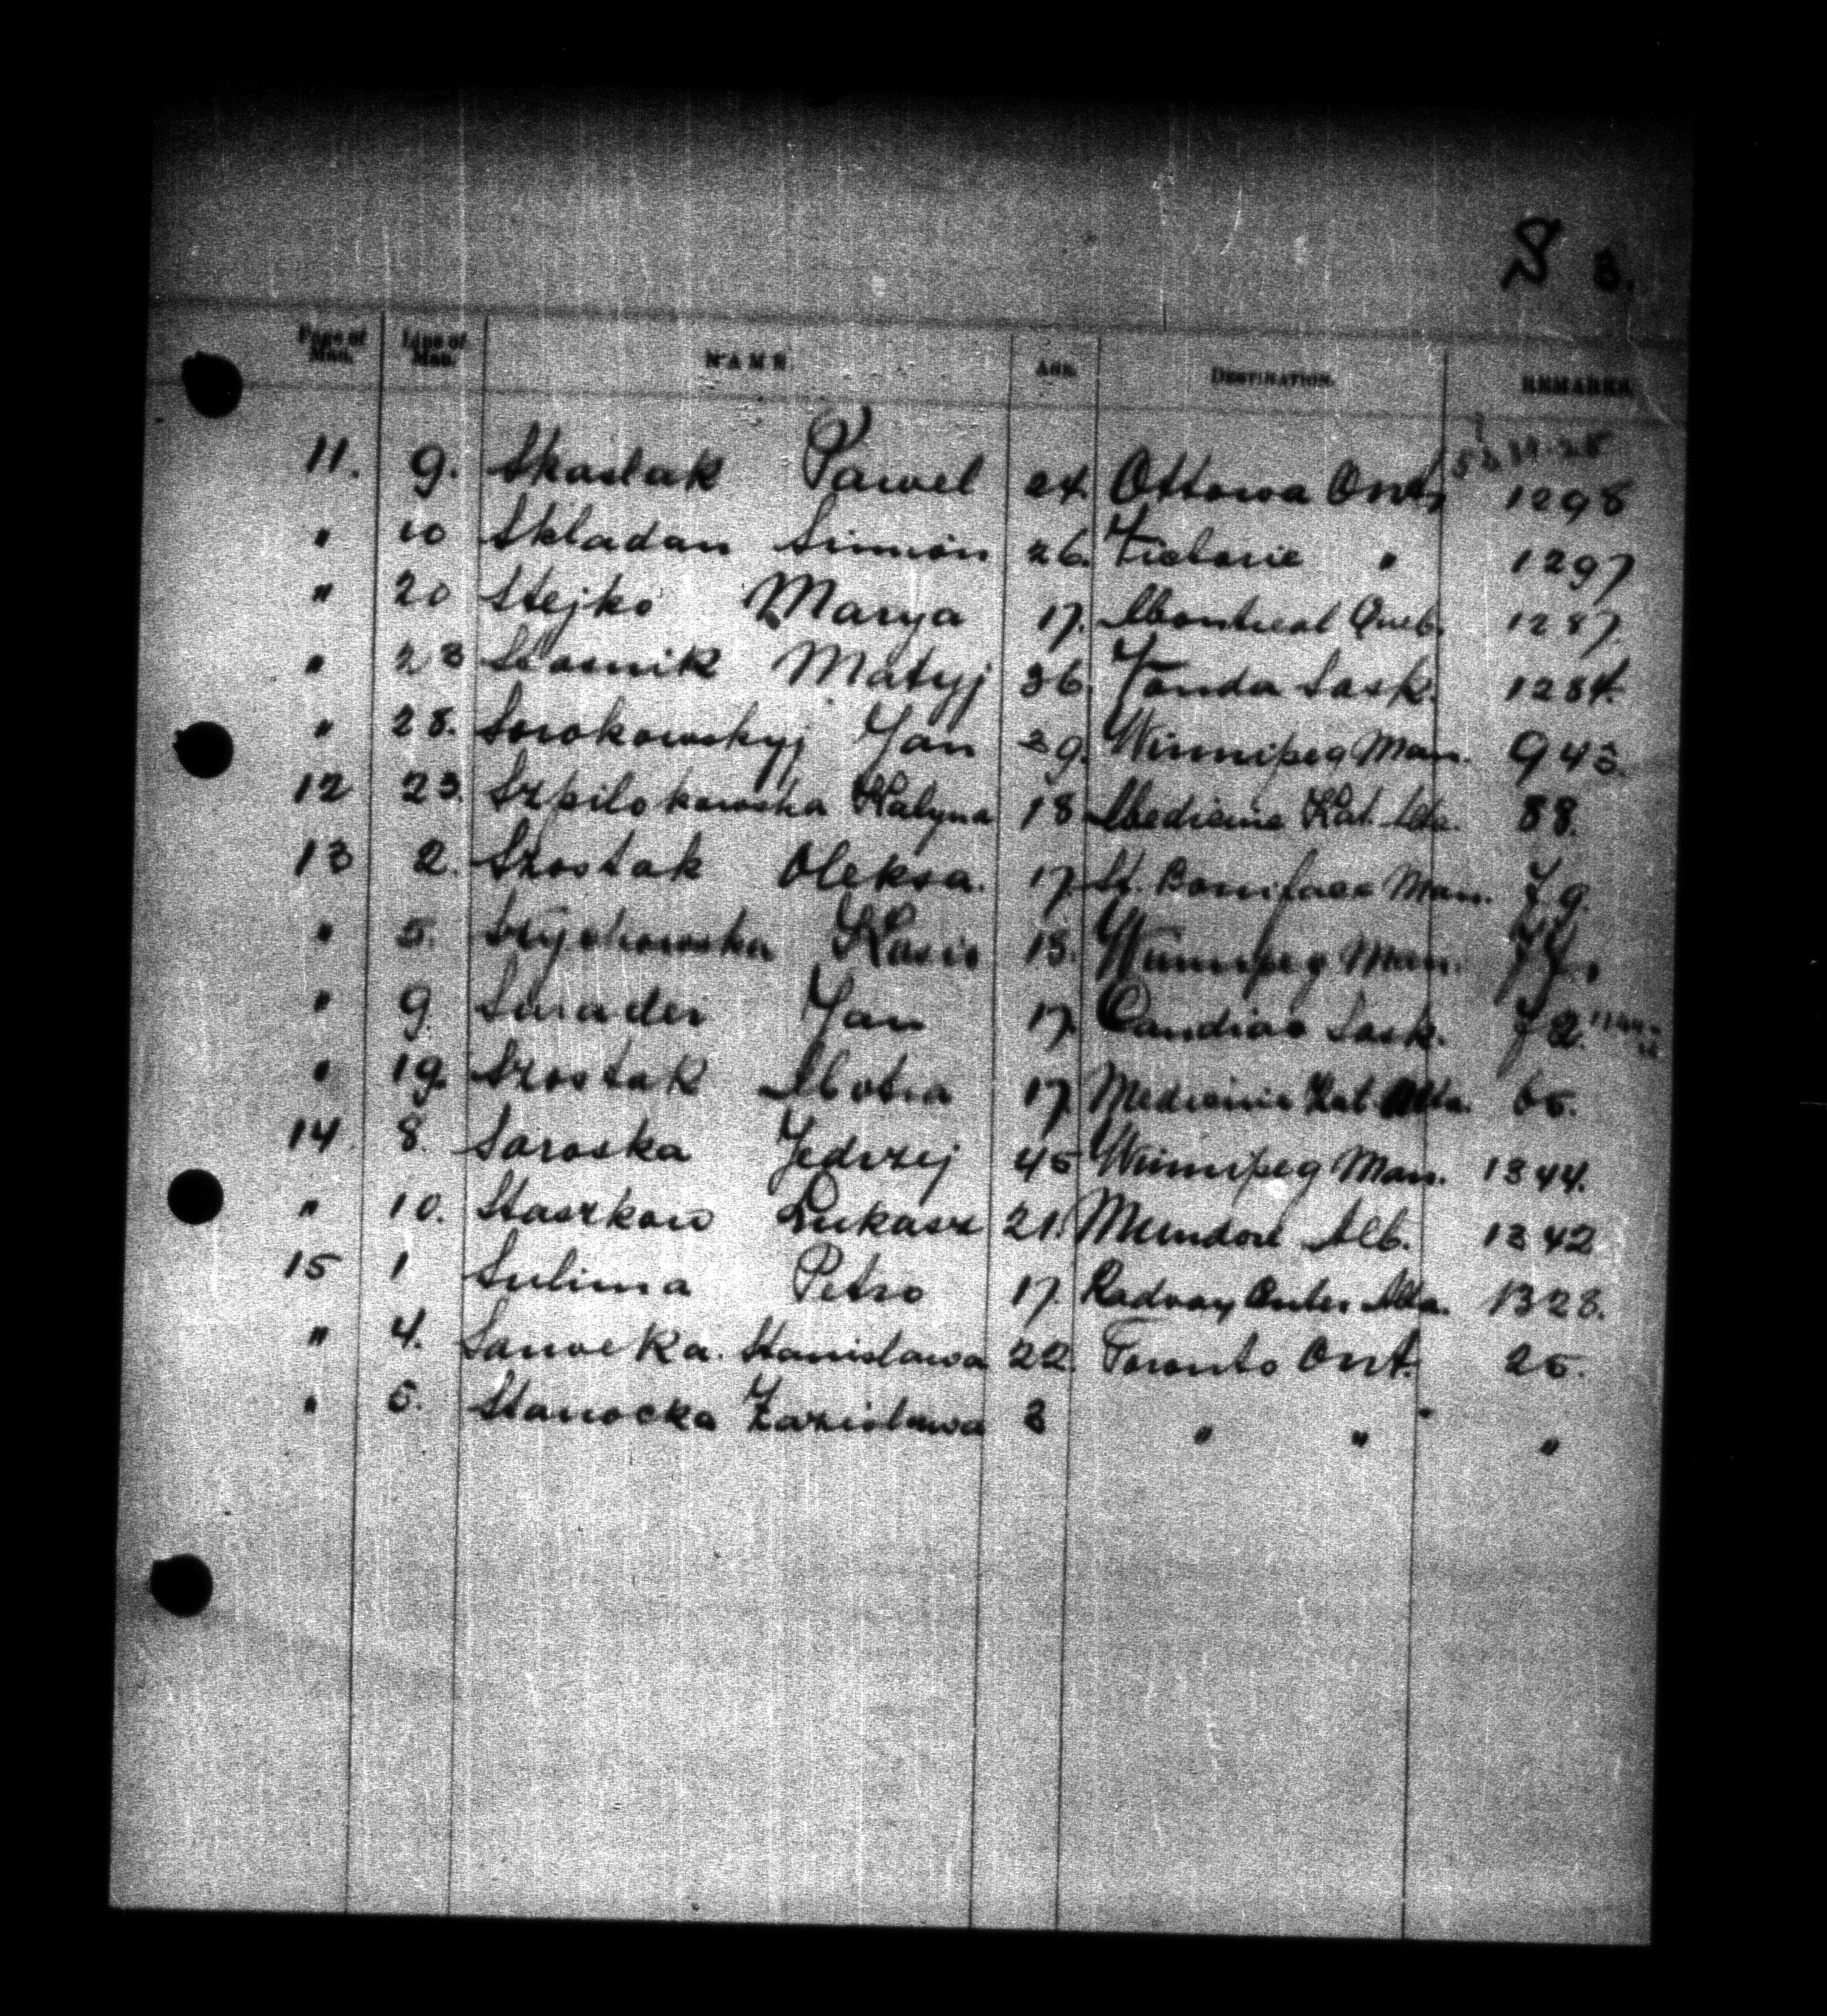 S 3.
Page of Man. Line of Man. NAME. AGE. DESTINATION. REMARKS.
11. 9. Skaslak Pawel 24. Ottowa Ont, 1298
" 10 Skladan Simion 26. Victorie " 1297
" 20 Stejko Marya 17. Montreal Queb. 1287
" 23 Matyj 36. Vonda Sask. 1284.
" 28. Sorokowskyj Jan 39. Winnipeg Man. 943.
12 23. Szpilokowska Kalyna 18 Medicine Hat. Alta. 88.
13 2. Szostak Oleksa. 17. St. Boniface Man. 79.
" 5. Kasia Winnipeg Man. 77.
" 9. Jan 17. Candiac Sask. 72.
" 19. Szostak 17. Medicine Hat. Alta. 65.
14 8. Saroska Jedrzej 45 Winnipeg Man. 1344.
" 10. Staszkow Lukasz 21. Mundare Alb. 1342
15 1 Sulima Petro 17. Radway Center Alta. 1328.
" 4. Sanocka. Stanislawa 22. Toronto Ont. 25.
" 5. Stanocka 3 " " "